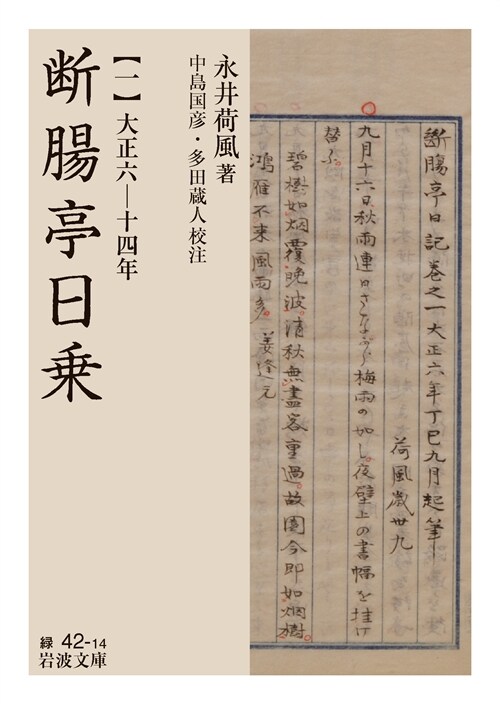 断腸亭日乗
【一】大正六―十四年
永井荷風著
中島国彦・多田蔵人校注
緑 42-14
岩波文庫
断膓亭日記巻之一大正六年丁巳九月起筆
荷風歳卅九
九月十六日秋雨連日さながら梅雨の如し夜壁上の書幅を挂け
替ふ
碧樹如烟覆晩波清秋無盡客重過故園今即如烟樹
鴻雁不来風雨多 姜逢元